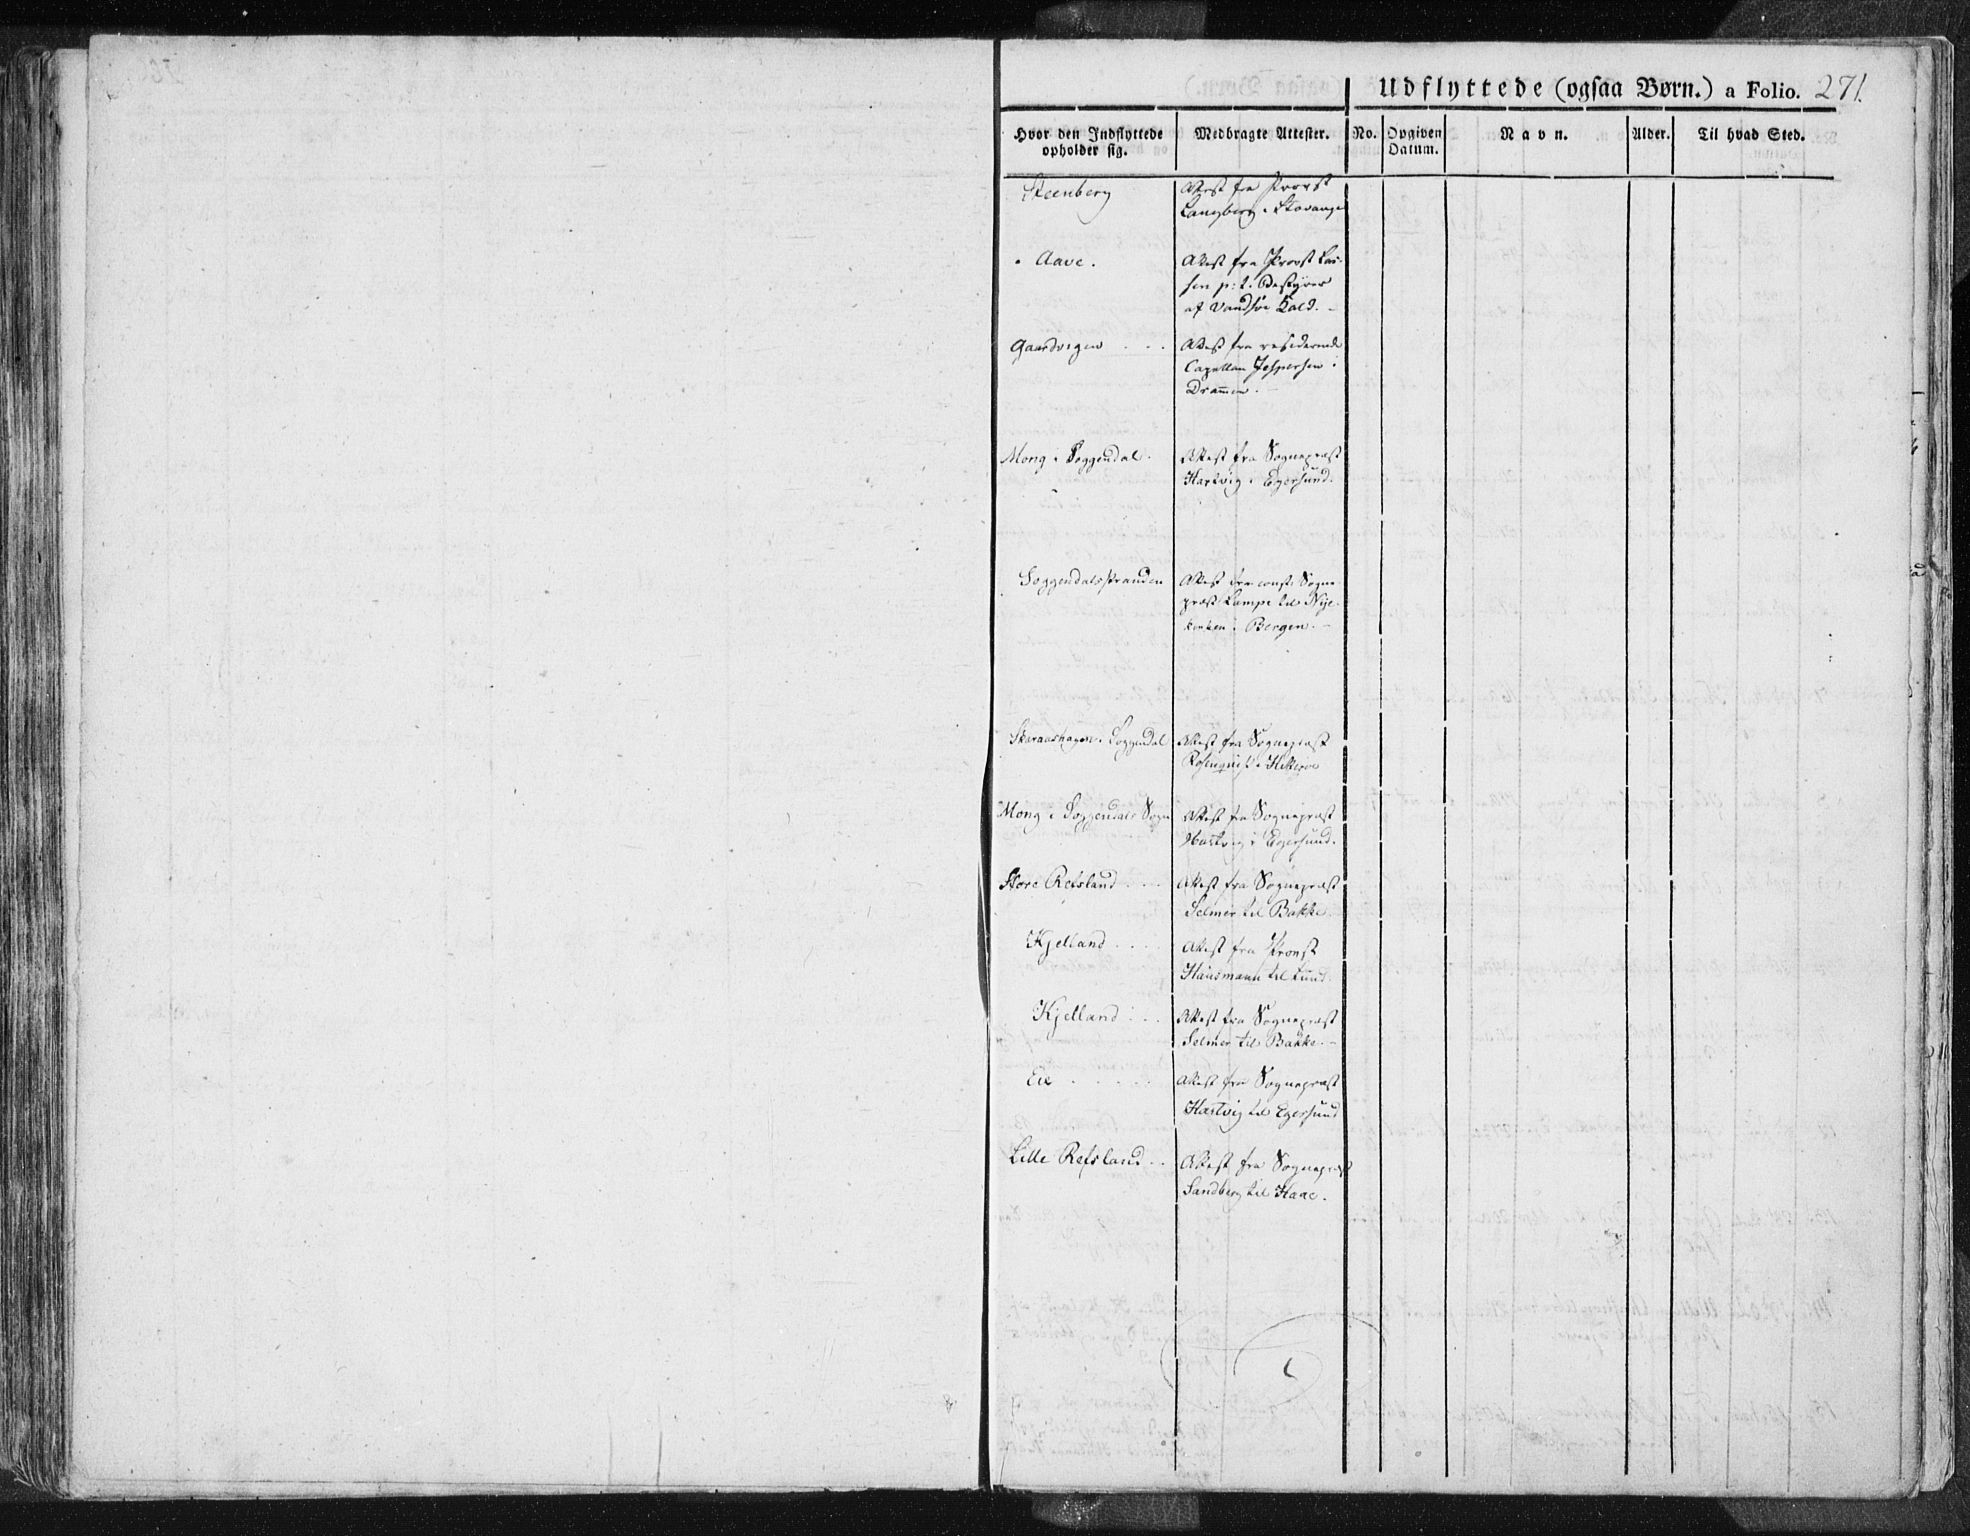 Udflyttede (ogsaa Børn.) a Folio. 271.
Hvor den Indflyttede opholder sig.
Medbragte Attester.
No.
Opgiven Datum.
Navn.
Alder.
Til hvad Sted.
Steenberg
Attest fra Provst
Langberg i Stavanger
Aave.
Attest fra Provst Las-
sen p: t. Bestyrer
af Vandsøe Kald. -
Gaardvigen . . .
Attest fra residerende
Capellan Jespersen i
Dramen. -
Mong i Soggendal.
Attest fra Sognepræst
Hartvig i Egersund.
Soggendalsstranden
Attest fra const. Sogne
præst Lampe til Nye-
kirken i Bergen. -
i Soggendal
Attest fra Sognepræst
Rosenqvist i Hitterøe
Mong i Soggendals Sogn
Attest fra Sognepræst
Hartvig i Egersund.
Store Refsland . . .
Attest fra Sognepræst
Selmer til Bakke.
Kjelland . . . .
Attest fra Provst
Hausmann til Lund.
Kjelland . . .
Attest fra Sognepræst
Selmer til Bakke. -
Eie . . . . .
Attest fra Sognepræst
Hartvig til Egersund
Lille Refsland . .
Attest fra Sognepræst
Sandberg til Haae.